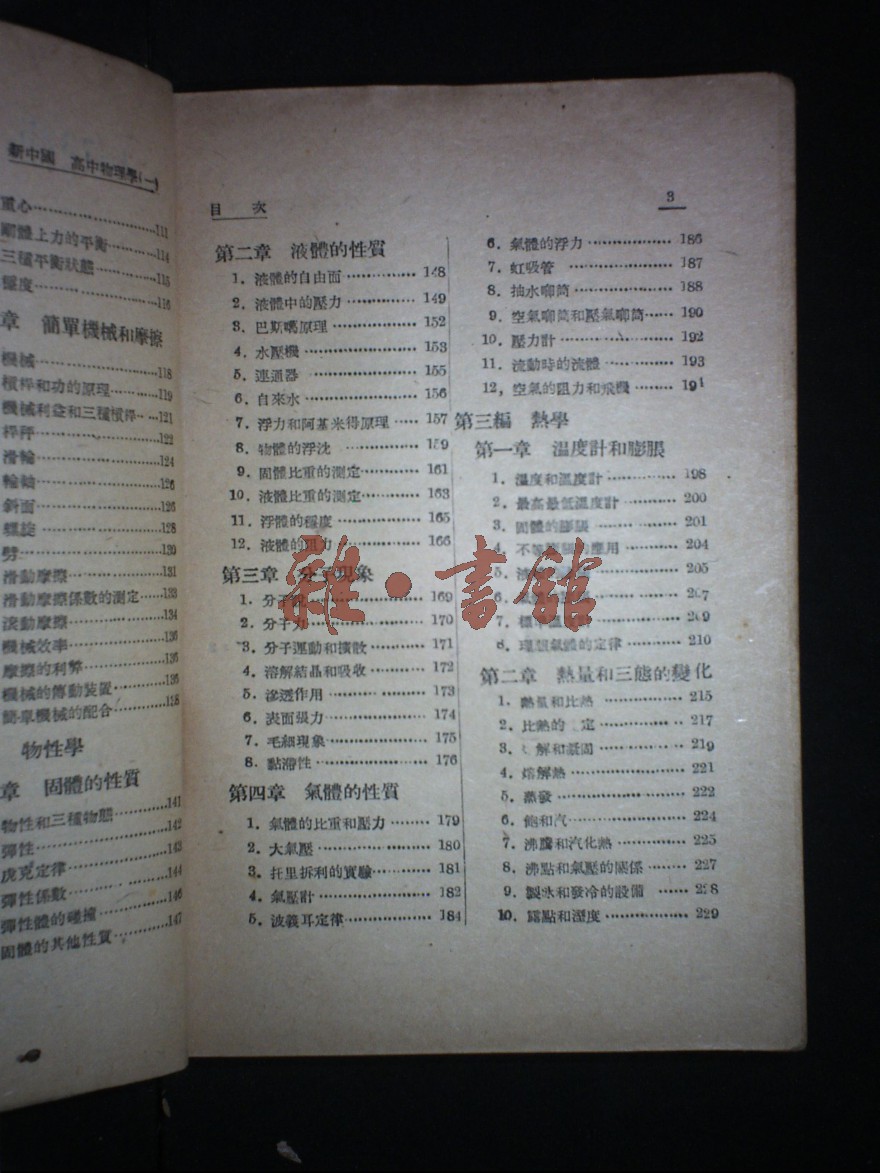 新中國 高中物理學(一)
重心 111
剛體上力的平衡 114
三種平衡狀態 115
穩度 116
章 簡單機械和摩擦
機械 118
槓桿和功的原理 119
機械利益和三種槓桿 121
桿秤 122
滑輪 124
輪軸 126
斜面 126
螺旋 128
劈 130
滑動摩擦 131
滑動摩擦係數的測定 133
滾動摩擦 134
機械效率 136
摩擦的利弊 136
機械的傳動裝置 136
簡單機械的配合 138
物性學
章 固體的性質
物性和三種物態 141
彈性 142
虎克定律 143
彈性係數 144
彈性體的碰撞 146
固體的其他性質 147
目 次 3
第二章 液體的性質
1. 液體的自由面 148
2. 液體中的壓力 149
3. 巴斯噶原理 152
4. 水壓機 153
5. 連通器 155
6. 自來水 156
7. 浮力和阿基米得原理 157
8. 物體的浮沈 159
9. 固體比重的測定 161
10. 液體比重的測定 163
11. 浮體的穩度 165
12. 液體的阻力 166
第三章 分子現象
1. 分子 169
2. 分子力 170
3. 分子運動和擴散 171
4. 溶解結晶和吸收 172
5. 滲透作用 173
6. 表面張力 174
7. 毛細現象 175
8. 黏滯性 176
第四章 氣體的性質
1. 氣體的比重和壓力 179
2. 大氣壓 180
3. 托里拆利的實驗 181
4. 氣壓計 182
5. 波義耳定律 184
6. 氣體的浮力 186
7. 虹吸管 187
8. 抽水喞筒 188
9. 空氣喞筒和壓氣喞筒 190
10. 壓力計 192
11. 流動時的流體 193
12, 空氣的阻力和飛機 194
第三編 熱學
第一章 溫度計和膨脹
1. 溫度和溫度計 198
2. 最高最低溫度計 200
3. 固體的膨脹 201
4. 不等膨脹的應用 204
5. 液 205
6. 207
7. 標準溫 209
8. 理想氣體的定律 210
第二章 熱量和三態的變化
1. 熱量和比熱 215
2. 比熱的 定 217
3. 解和凝固 219
4. 熔解熱 221
5. 蒸發 222
6. 飽和汽 224
7. 沸騰和汽化熱 225
8. 沸點和氣壓的關係 227
9. 製氷和發冷的設備 228
10. 露點和溼度 229
雜·書館